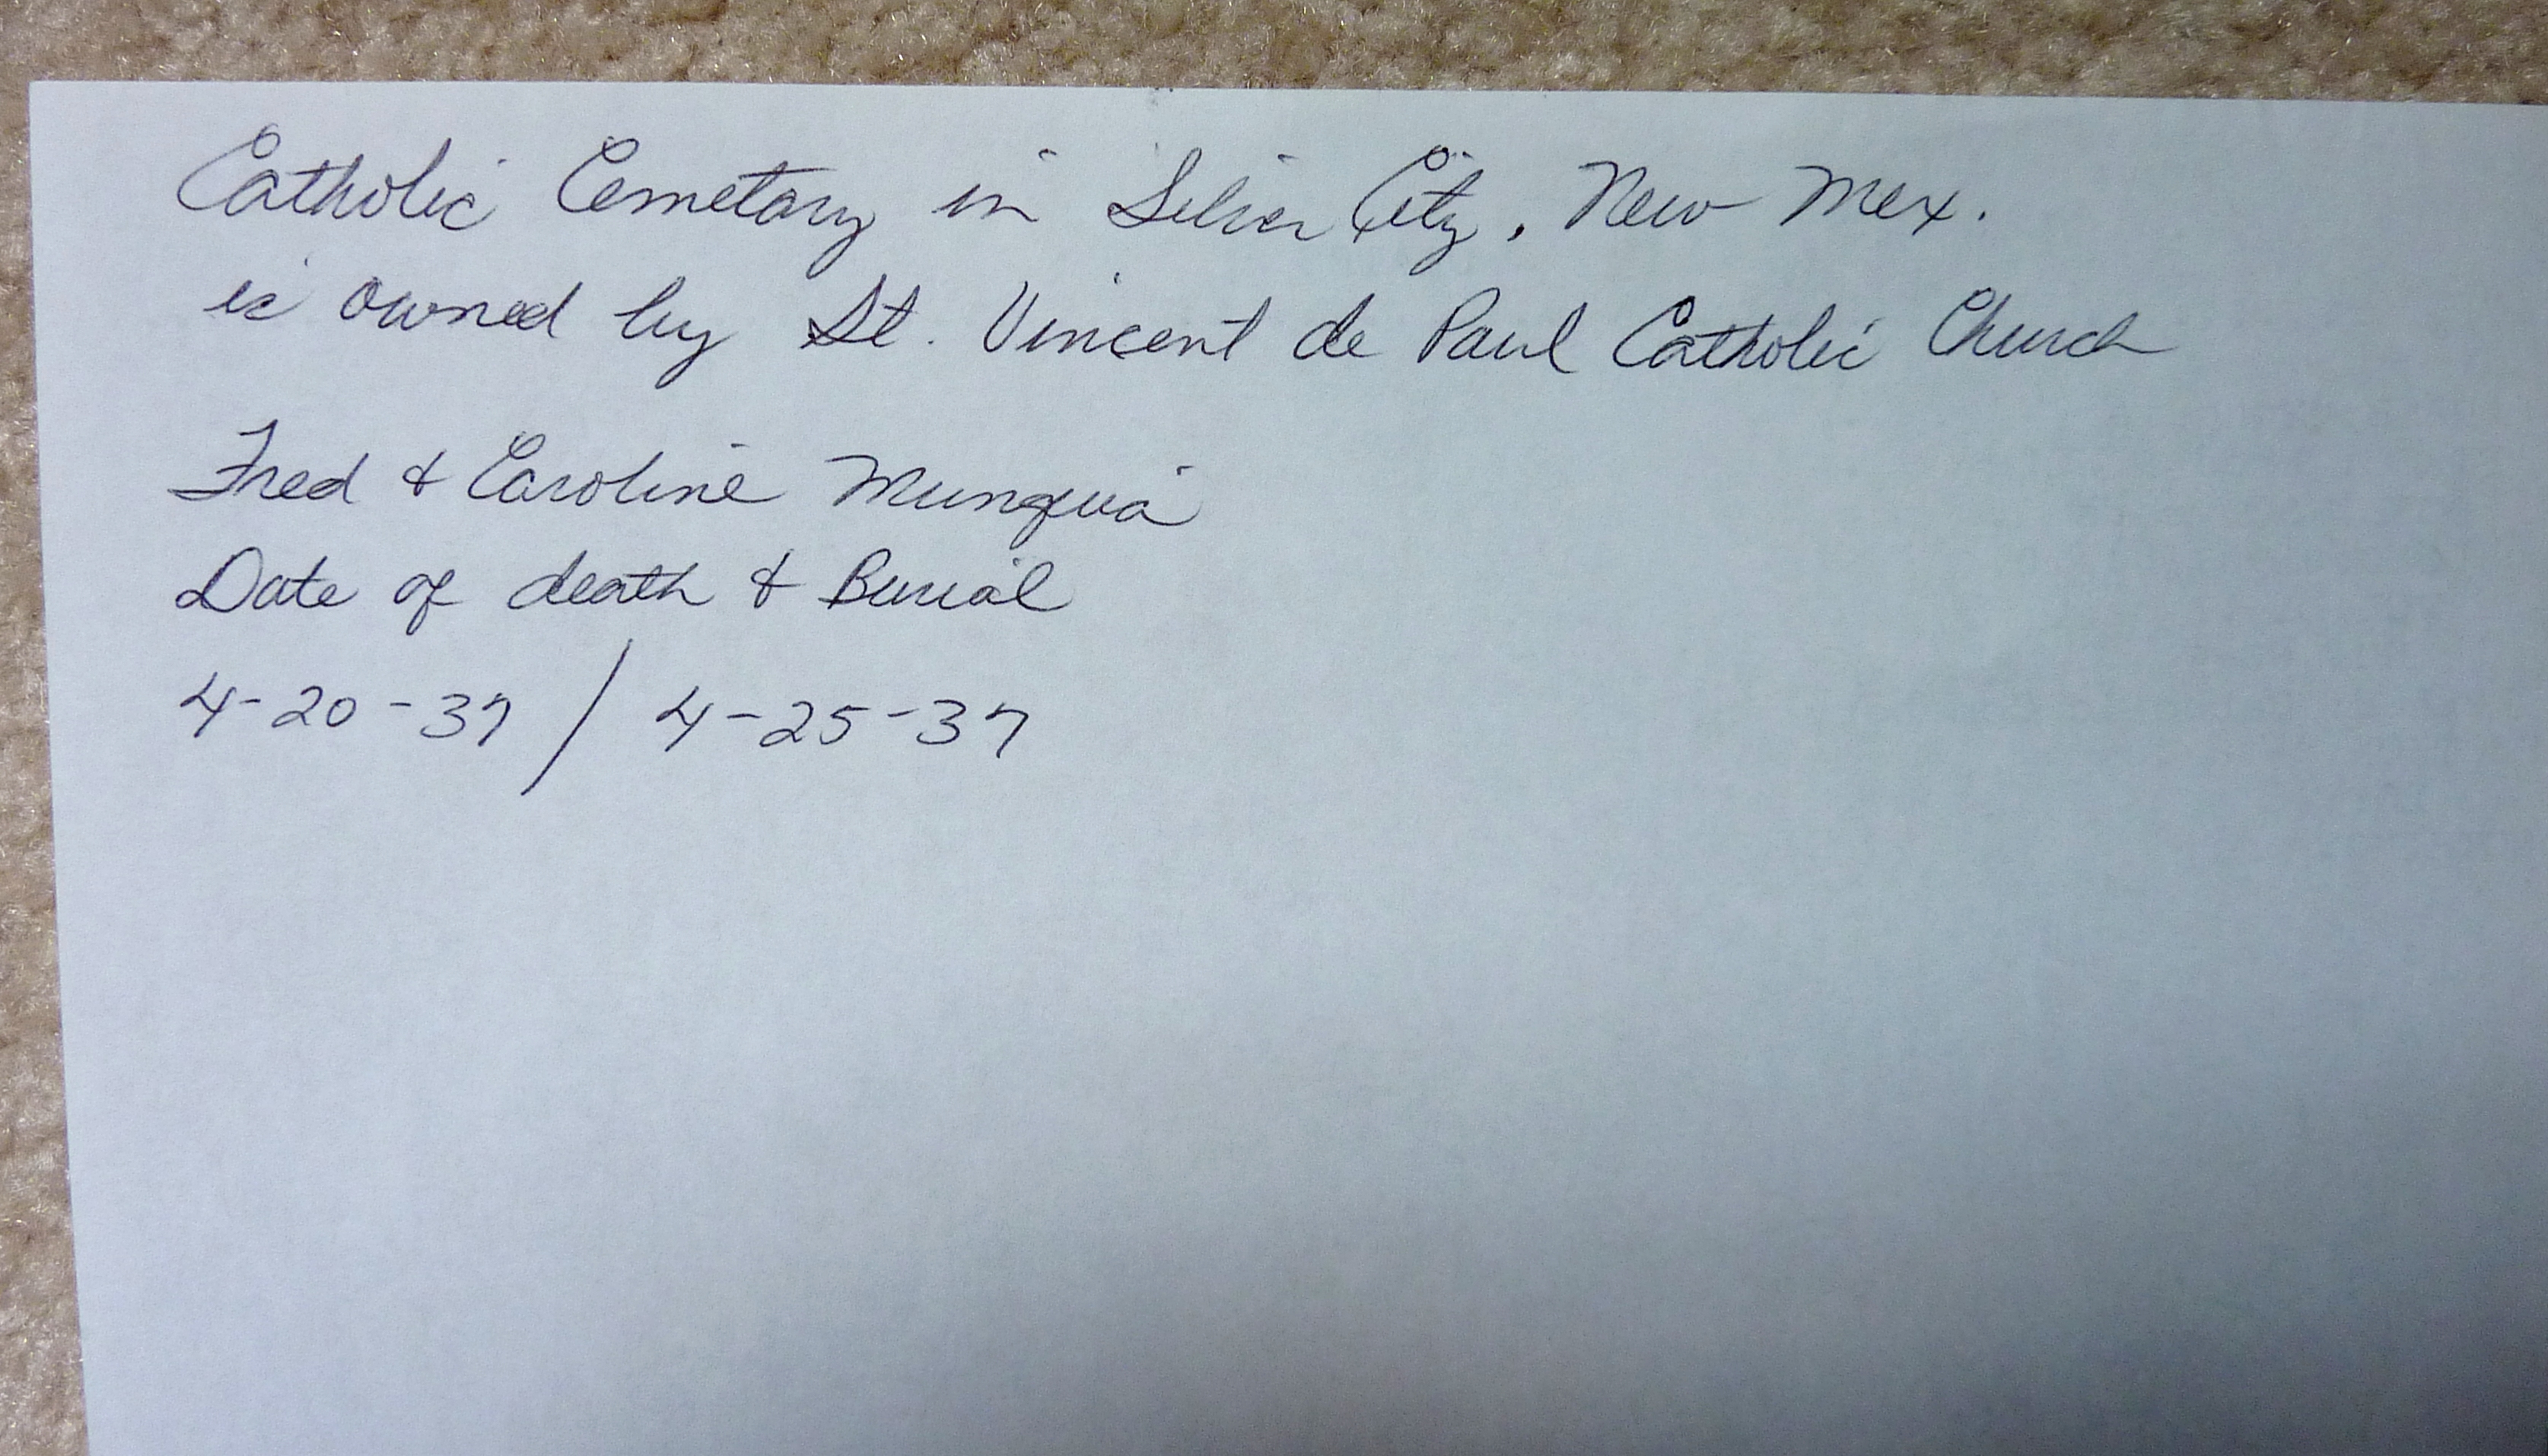 Catholic Cemetary in Silver City, New Mex.
is owned by St. Vincent de Paul Catholic Church
Fred & Caroline Munguia
Date of death & Burial
4-20-37 / 4-25-37